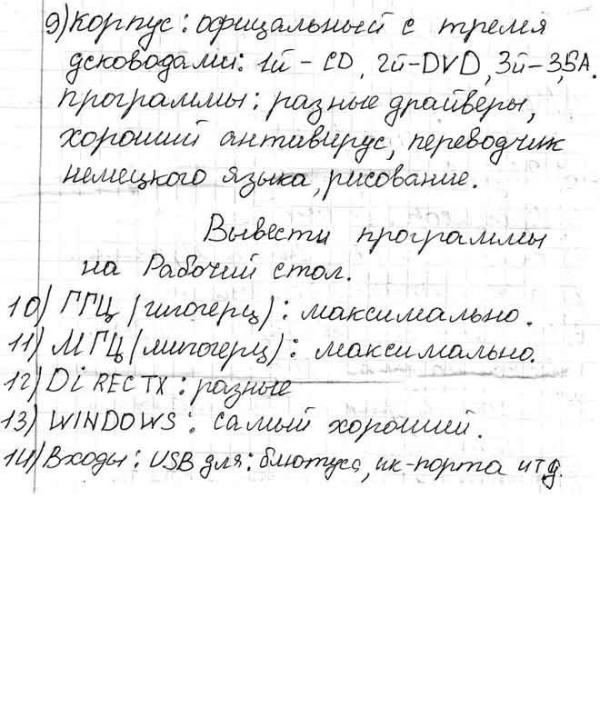 9) Корпус: офицальный с тремя
дсководами: 1й - CD, 2й-DVD, 3й-3,5А.
программы: разные драйверы,
хороший антивирус, переводчик
немецкого языка, рисование.
Вывести программы
на Рабочий стол.
10) ГГЦ (гигогерц): максимально.
11) МГЦ (мигогерц): максимально.
12) DiRECTX: разные
13) WINDOWS: самый хороший.
14) Входы: USB для: блютусс, ик-порта итд.